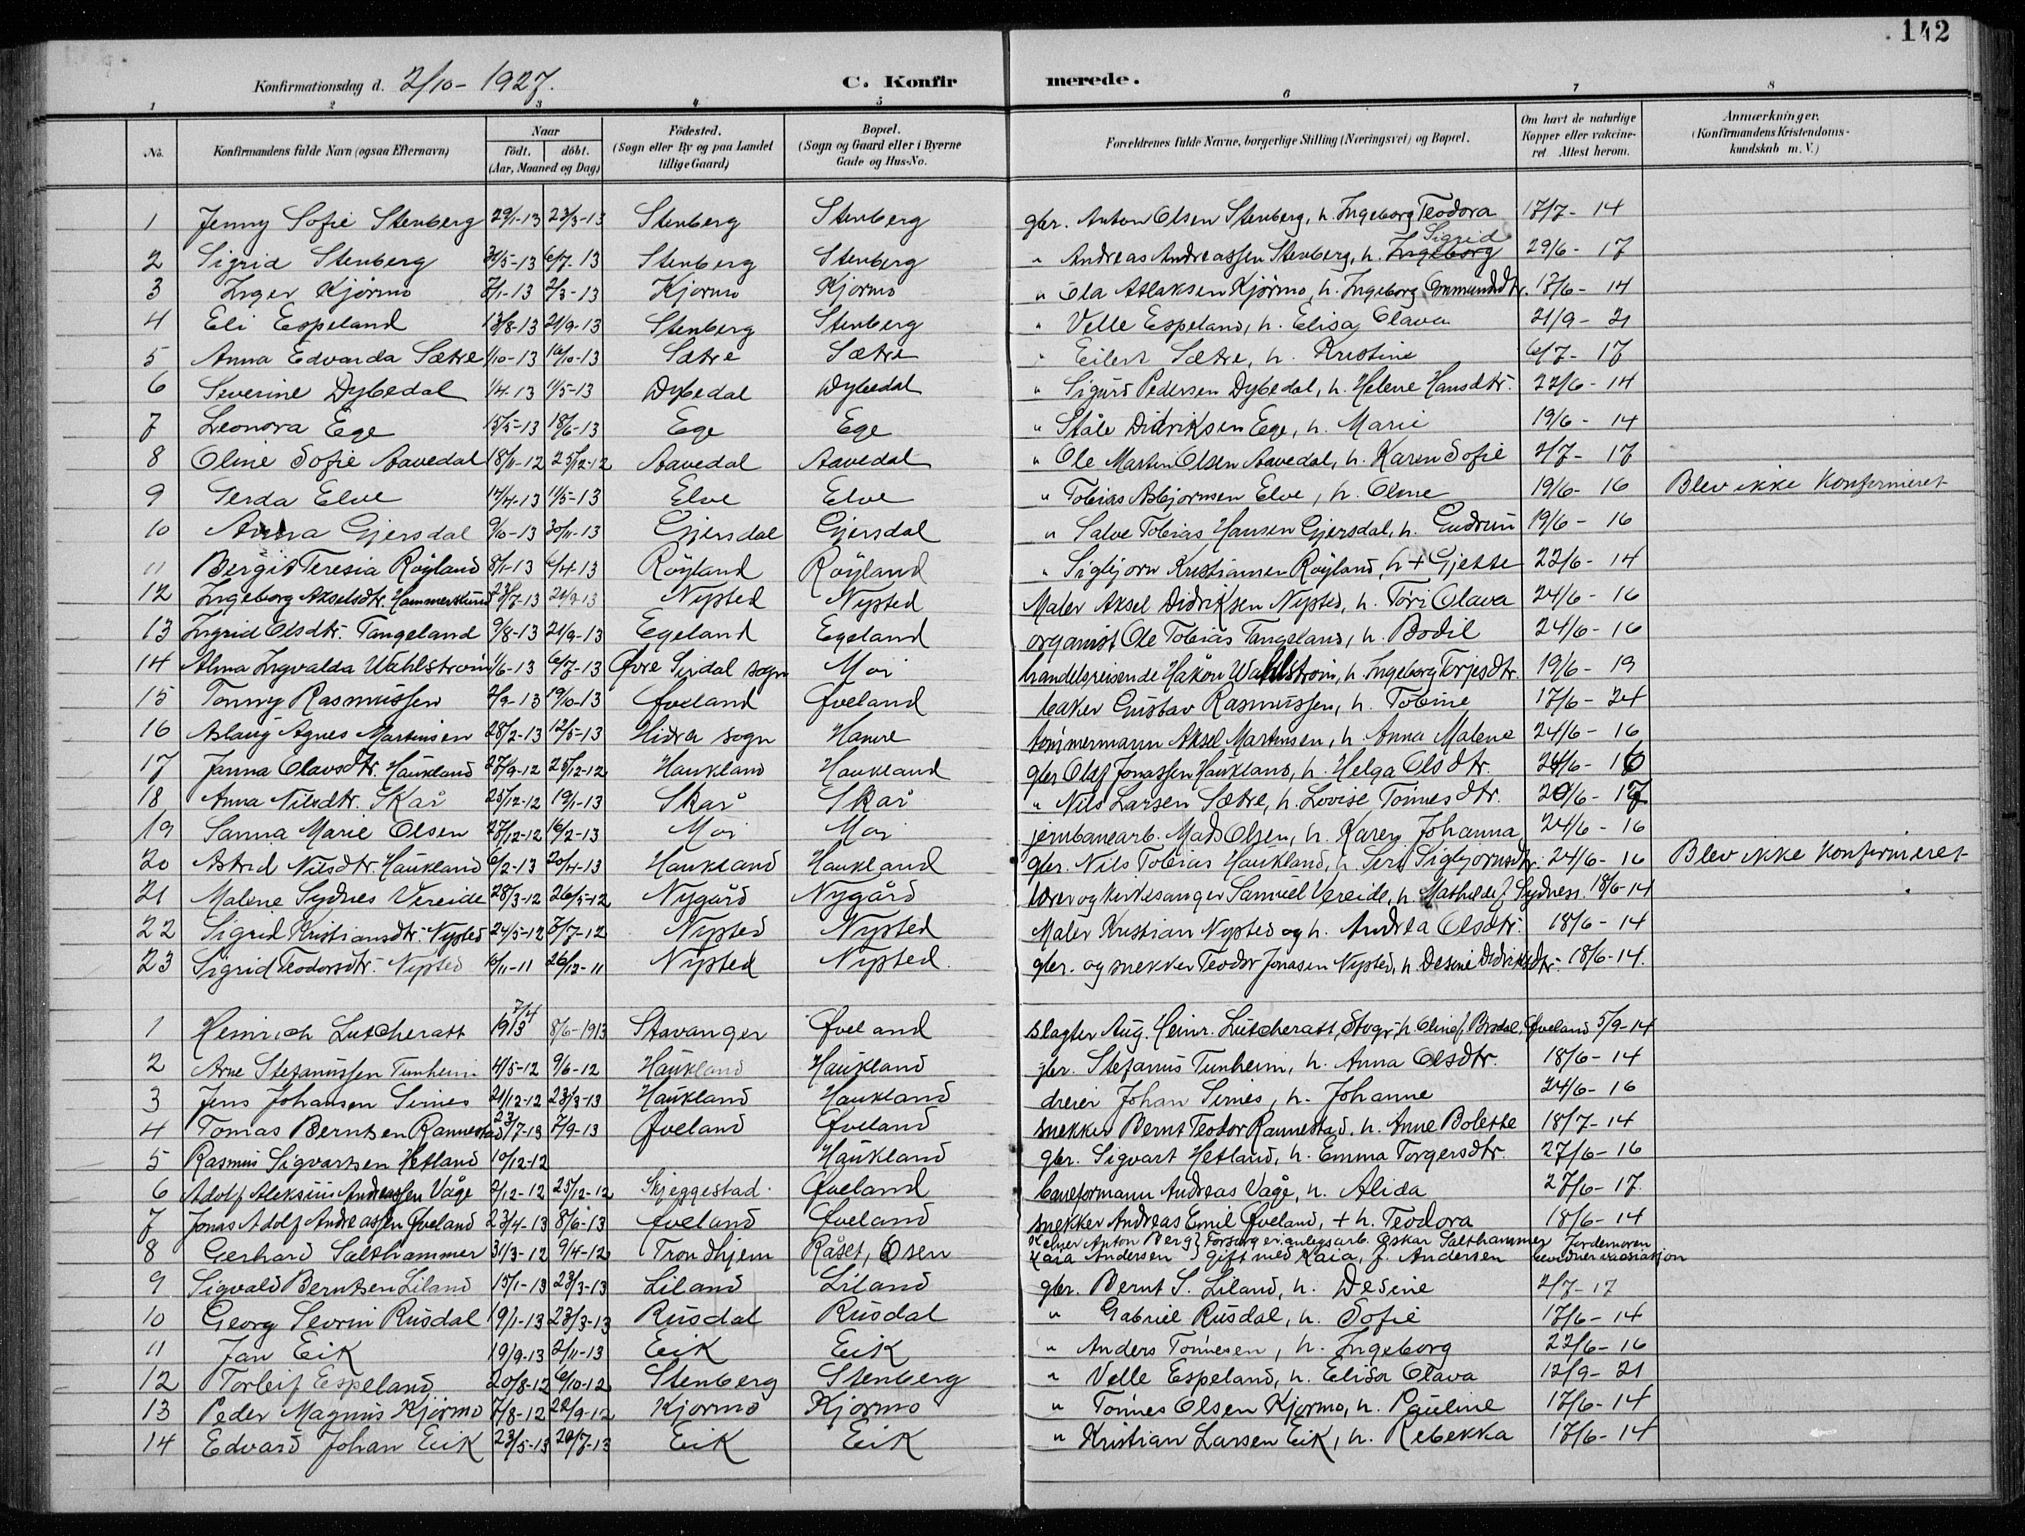 142
Konfirmationsdag d. 2/10 - 1927. C. Konfirmerede.
1 2 3 4 5 6 7 8
No. Konfirmandens fulde Navn (ogsaa Efternavn) Naar födt. döbt. (Aar, Maaned og Dag) Födested. (Sogn eller By og paa Landet tillige Gaard) Bopæl. (Sogn og Gaard eller i Byerne Gade og Hus-No. Forældrenes fulde Navne, borgerlige Stilling (Næringsvei) og Bopæl. Om havt de naturlige Kopper eller vakcineret. Attest herom. Anmærkninger, (Konfirmandens Kristendomskundskab m. V.)
1 Jenny Sofie Stenberg 29/1-13 23/3-13 Stenberg Stenberg gbr. Anton Olsen Stenberg, h. Ingeborg Teodora 17/7 - 14
2 Sigrid Stenberg 31/5-13 6/7-13 Stenberg Stenberg " Andreas Andreassen Stenberg, h. Ingeborg Sigrid 29/6 - 17
3 Inger Kjörmo 7/1-13 2/3-13 Kjörmo Kjörmo " Ola Atlaksen Kjörmo, h. Ingeborg Ommundsdtr. 17/6 - 14
4 Eli Espeland 13/8-13 21/9-13 Stenberg Stenberg " Velle Espeland, h. Elisa Olava 21/9 - 21
5 Anna Edvarda Sætre 1/10-13 16/10-13 Sætre Sætre " Eilert Sætre, h. Kristine 6/7 - 17
6 Severine Dybedal 1/4-13 11/5-13 Dybedal Dybedal " Sigurd Pedersen Dybedal, h. Helene Hansdtr. 22/6 - 14
7 Leonora Ege 15/5-13 18/6-13 Ege Ege " Ståle Didriksen Ege, h. Marie 19/6 - 14
8 Oline Sofie Aavedal 18/11-12 25/12-12 Aavedal Aavedal " Ole Marten Olsen Aavedal, h. Karen Sofie 2/7 - 17
9 Gerda Elve 14/4-13 11/5-13 Elve Elve " Tobias Asbjornsen Elve, h. Oline 19/6 - 16 Blev ikke Konfirmeret
10 Anna Gjersdal 9/10-13 30/11-13 Gjersdal Gjersdal " Salve Tobias Hansen Gjersdal, h. Gudrun 19/6 - 16
11 Bergit Teresia Röyland 8/1-13 6/4-13 Röyland Röyland " Sigbjorn Kristiansen Röyland, h + Gjette 22/6 - 14
12 Ingeborg Akselsdtr. Hammerslund 23/7-13 21/9-13 Nysted Nysted Maler Aksel Didriksen Nysted, h. Töri Olava 24/6 - 16
13 Ingrid Olsdtr. Tangeland 9/8-13 21/9-13 Egeland Egeland organist Ole Tobias Tangeland, h. Bodil 24/6 - 16
14 Alma Ingvalda Wahlström 1/6-13 6/7-13 Övre Sirdal sogn Moi handelsreisende Håkon Wahlström, h. Ingeborg Torjesdtr. 19/6 - 19
15 Tonny Rasmussen 2/9-13 19/10-13 Öveland Öveland baker Gustav Rasmussen, h. Tobine 17/6 - 24
16 Aslaug Agnes Martinsen 28/2-13 12/5-13 Hidra sogn Hamre tömmermann Aksel Martinsen, h Anna Malene 24/6 - 16
17 Janna Olavsdtr. Haukland 27/9-12 25/12-12 Haukland Haukland gbr Olaf Jonassen Haukland, h. Helga Olsdtr. 24/6 - 16
18 Anna Nilsdtr. Skår 25/12-12 19/1-13 Skår Skår " Nils Larsen Sætre, h. Lovise Tönnesdtr. 20/6 - 17
19 Sanna Marie Olsen 27/12-12 16/2-13 Moi Moi jernbanearb. Mads Olsen, h. Karen Johanna 24/6 - 16
20 Astrid Nilsdtr. Haukland 6/2-13 20/4-13 Haukland Haukland gbr. Nils Tobias Haukland, h. Siri Sigbjornsdtr. 24/6 - 16 Blev ikke konfirmeret
21 Malene Sydnes Vereide 28/3-12 26/5-12 Nygård Nygård lærer og kirkesanger Samuel Vereide, h. Mathilde f. Sydnes. 18/6-14
22 Sigrid Kristiansdtr. Nysted 24/5-12 7/7-12 Nysted Nysted Maler Kristian Nysted og h. Andrea Olsdtr. 18/6 - 14
23 Sigrid Teodorsdtr. Nysted 16/11-11 26/12-11 Nysted Nysted. gbr. og snekker Teodor Jonasen Nysted, h. Desine Didriksdtr. 18/6-14.
1 Heinrich Lutcheratt 7/4 1913 8/6-1913 Stavanger Öveland slagter Aug. Heinr. Lutcheratt, Stvgr, h. Oline f. Bredal, Öveland 5/9-14
2 Arne Stefanussen Tunheim 4/5-12 9/6-12 Haukland Haukland gbr. Stefanus Tunheim, h. Anna Olsdtr. 18/6-14
3 Jens Johansen Sirnes 21/12-12 23/3-13 Haukland Haukland dreier Johan Sirnes, h. Johanne 24/6 - 16
4 Tomas Berntsen Rannestad 23/7-13 7/9-13 Öveland Öveland snekker Bernt Teodor Rannestad, h. Anne Bolette 18/7-14
5 Rasmus Sigvartsen Hetland 10/12-12 Haukland gbr. Sigvart Hetland, h. Emma Torgersdtr. 27/6-16
6 Adolf Aleksius Andreassen Våge 2/12-12 25/12-12 Skjeggestad. Öveland baneformann Andreas Våge, h. Alida 27/6-17.
7 Jonas Adolf Andreassen Öveland 23/4-13 8/6-13 Öveland Öveland snekker Andreas Emil Öveland, + h. Teodora 18/6-14
8 Gerhard Salthammer 31/3-12 9/4-12 Trondhjem Råset, Osen Kelner Anton Berg } Forsörger: anlegsarb. Oskar Salthammer Jordemoren
Kaia Andersen } gift med Kaia, f. Andersen bevidner vaksinasjon
9 Sigvald Berntsen Liland 15/1-13 23/3-13 Liland Liland gbr. Bernt S. Liland, h. Desine 2/7-17
10 Georg Severin Rusdal 19/1-13 23/3-13 Rusdal Rusdal " Gabriel Rusdal, h. Sofie 17/6-14
11 Jan Eik 19/9-13 2/11-13 Eik Eik " Anders Tönnesen, h. Ingeborg 22/6-16
12 Torleif Espeland 20/8-12 6/10-12 Stenberg Stenberg " Velle Espeland, h. Elisa Olava 12/9-21
13 Peder Magnus Kjörmo 7/8-12 22/9-12 Kjörmo Kjörmo " Tönnes Olsen Kjörmo, h. Pauline 17/6-14
14 Edvard Johan Eik 23/5-13 20/7-13 Eik Eik " Kristian Larsen Eik, h. Rebekka 17/6-14